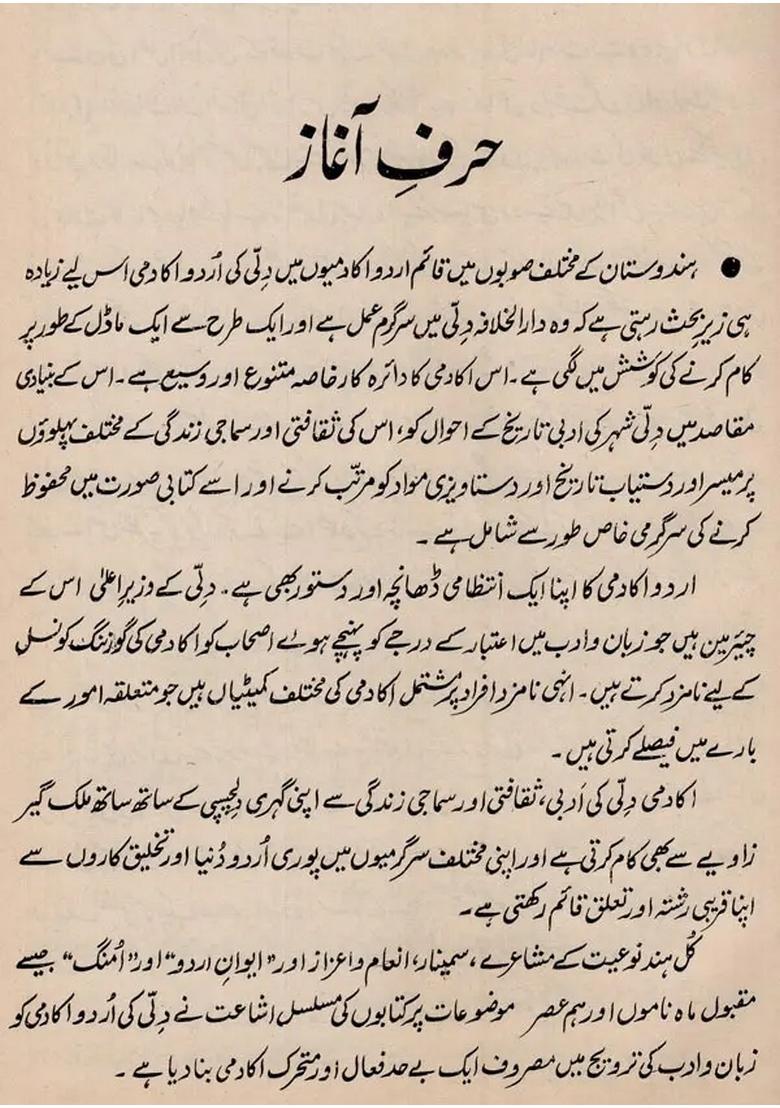 حرفِ آغاز
● ہندوستان کے مختلف صوبوں میں قائم اردو اکادمیوں میں دِلّی کی اُردو اکادمی اس لیے زیادہ
ہی زیرِ بحث رہتی ہے کہ وہ دارالخلافہ دِلّی میں سرگرمِ عمل ہے اور ایک طرح سے ایک ماڈل کے طور پر
کام کرنے کی کوشش میں لگی ہے ۔ اس اکادمی کا دائرہ کار خاصہ متنوع اور وسیع ہے ۔ اس کے بنیادی
مقاصد میں دِلّی شہر کی ادبی تاریخ کے احوال کو، اس کی ثقافتی اور سماجی زندگی کے مختلف پہلوؤں
پر میسر اور دستیاب تاریخ اور دستاویزی مواد کو مرتّب کرنے اور اسے کتابی صورت میں محفوظ
کرنے کی سرگرمی خاص طور سے شامل ہے ۔
اردو اکادمی کا اپنا ایک انتظامی ڈھانچہ اور دستور بھی ہے ۔ دِلّی کے وزیرِ اعلیٰ اس کے
چیئرمین ہیں جو زبان و ادب میں اعتبار کے درجے کو پہنچے ہوئے اصحاب کو اکادمی کی گورننگ کونسل
کے لیے نامزد کرتے ہیں ۔ انہی نامزد افراد پر مشتمل اکادمی کی مختلف کمیٹیاں ہیں جو متعلقہ امور کے
بارے میں فیصلے کرتی ہیں ۔
اکادمی دِلّی کی اَدبی، ثقافتی اور سماجی زندگی سے اپنی گہری دلچسپی کے ساتھ ساتھ ملک گیر
زاویے سے بھی کام کرتی ہے اور اپنی مختلف سرگرمیوں میں پوری اُردو دُنیا اور تخلیق کاروں سے
اپنا قریبی رشتہ اور تعلق قائم رکھتی ہے ۔
کُل ہند نوعیت کے مشاعرے ، سمینار، انعام و اعزاز اور "ایوانِ اردو" اور "اُمنگ" جیسے
مقبول ماہ ناموں اور ہم عصر موضوعات پر کتابوں کی مسلسل اشاعت نے دِلّی کی اُردو اکادمی کو
زبان و ادب کی ترویج میں مصروف ایک بے حد فعال اور متحرک اکادمی بنا دیا ہے ۔